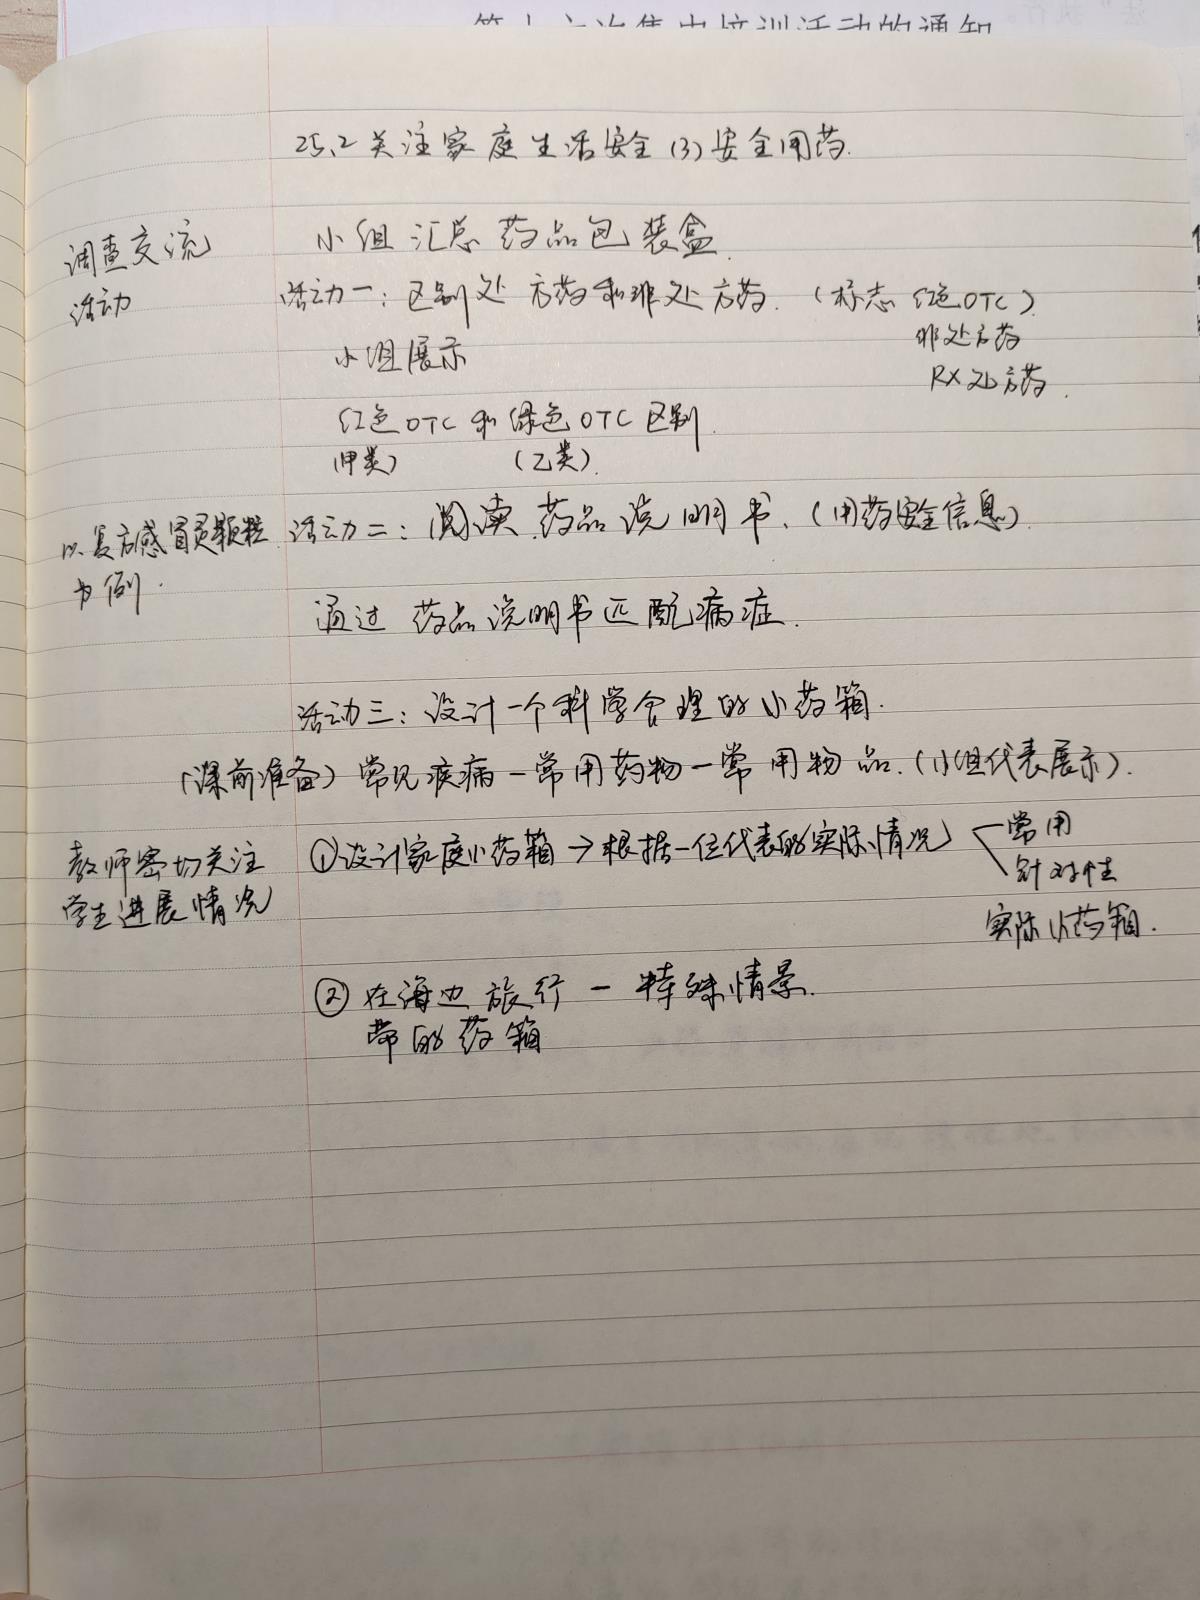 第十六次集中培训活动的通知
25.2关注家庭生活安全(3)安全用药.
调查交流
活动
小组汇总药品包装盒
活动一:区别处方药和非处方药.(标志 红色OTC)
非处方药
RX处方药.
小组展示
红色OTC和绿色OTC区别.
(甲类) (乙类).
以复方感冒灵颗粒
为例.
活动二:阅读药品说明书.(用药安全信息).
通过药品说明书匹配病症.
活动三:设计一个科学合理的小药箱.
(课前准备)常见疾病-常用药物-常用物品.(小组代表展示).
教师密切关注
学生进展情况
①设计家庭小药箱→根据一位代表的实际情况
常用
针对性
实际小药箱.
②在海边旅行-特殊情景.
带的药箱